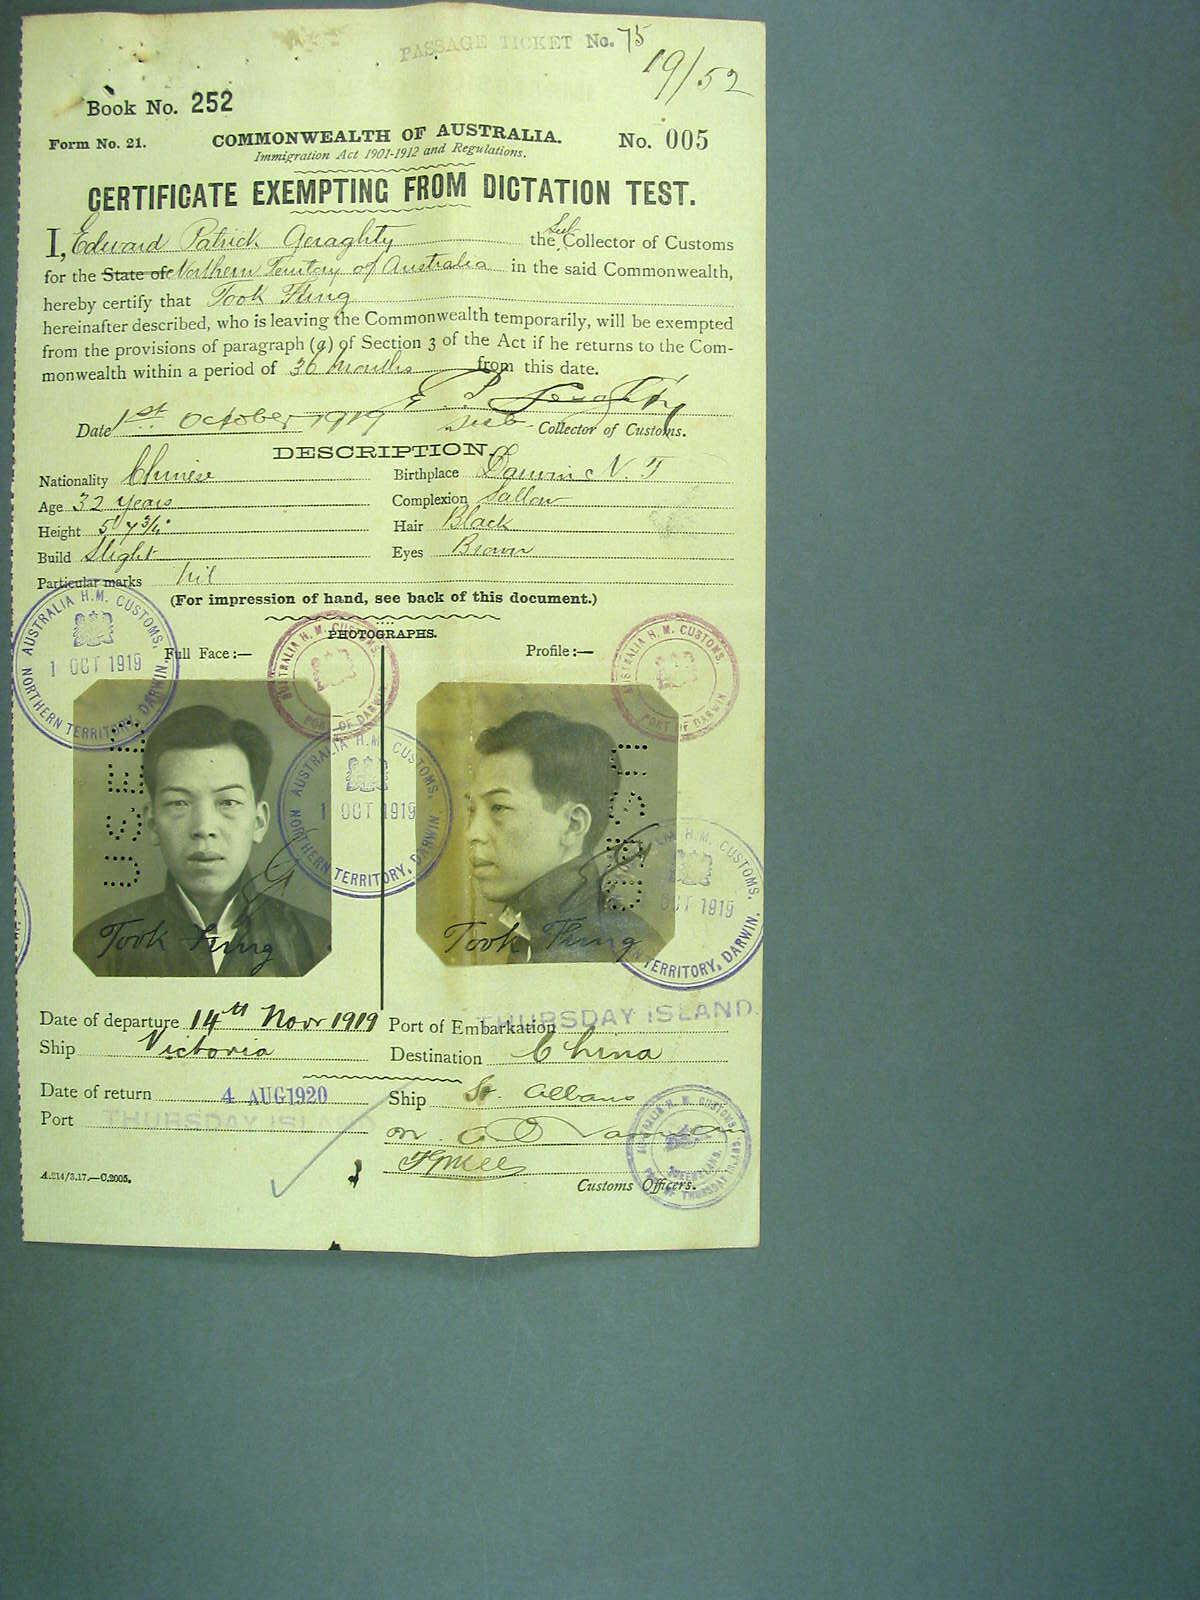 PASSAGE TICKET No. 75
19/52
Book No. 252
Form No. 21. COMMONWEALTH OF AUSTRALIA. No. 005
Immigration Act 1901-1912 and Regulations.
CERTIFICATE EXEMPTING FROM DICTATION TEST.
I, Edward Patrick Geraghty the Sub Collector of Customs
for the State of Northern Territory of Australia in the said Commonwealth,
hereby certify that Took Fling
hereinafter described, who is leaving the Commonwealth temporarily, will be exempted
from the provisions of paragraph (a) of Section 3 of the Act if he returns to the Com-
monwealth within a period of 36 Months from this date.
E P Geraghty
Date 1st October 1919 Sub- Collector of Customs.
DESCRIPTION.
Nationality Chinese Birthplace Darwin N. T
Age 32 Years Complexion Sallow
Height 5' 7 3/4" Hair Black
Build Slight Eyes Brown
Particular marks nil
(For impression of hand, see back of this document.)
PHOTOGRAPHS.
Full Face:— Profile:—
AUSTRALIA H.M. CUSTOMS, 1 OCT 1919 NORTHERN TERRITORY, DARWIN.
AUSTRALIA H. M. CUSTOMS. PORT OF DARWIN
AUSTRALIA H. M. CUSTOMS. PORT OF DARWIN
USED
AUSTRALIA H.M. CUSTOMS, 1 OCT 1919 NORTHERN TERRITORY, DARWIN.
H.M. CUSTOMS, OCT 1919 TERRITORY, DARWIN.
Took Fling Took Fling
Date of departure 14th Novr 1919 Port of Embarkation THURSDAY ISLAND.
Ship Victoria Destination China
Date of return 4 AUG 1920 Ship St. Albans
Port THURSDAY ISLAND
AUSTRALIA H. M. CUSTOMS, QUEENSLAND. PORT OF THURSDAY ISLAND
A.214/3.17.—C.2005. Customs Officers.